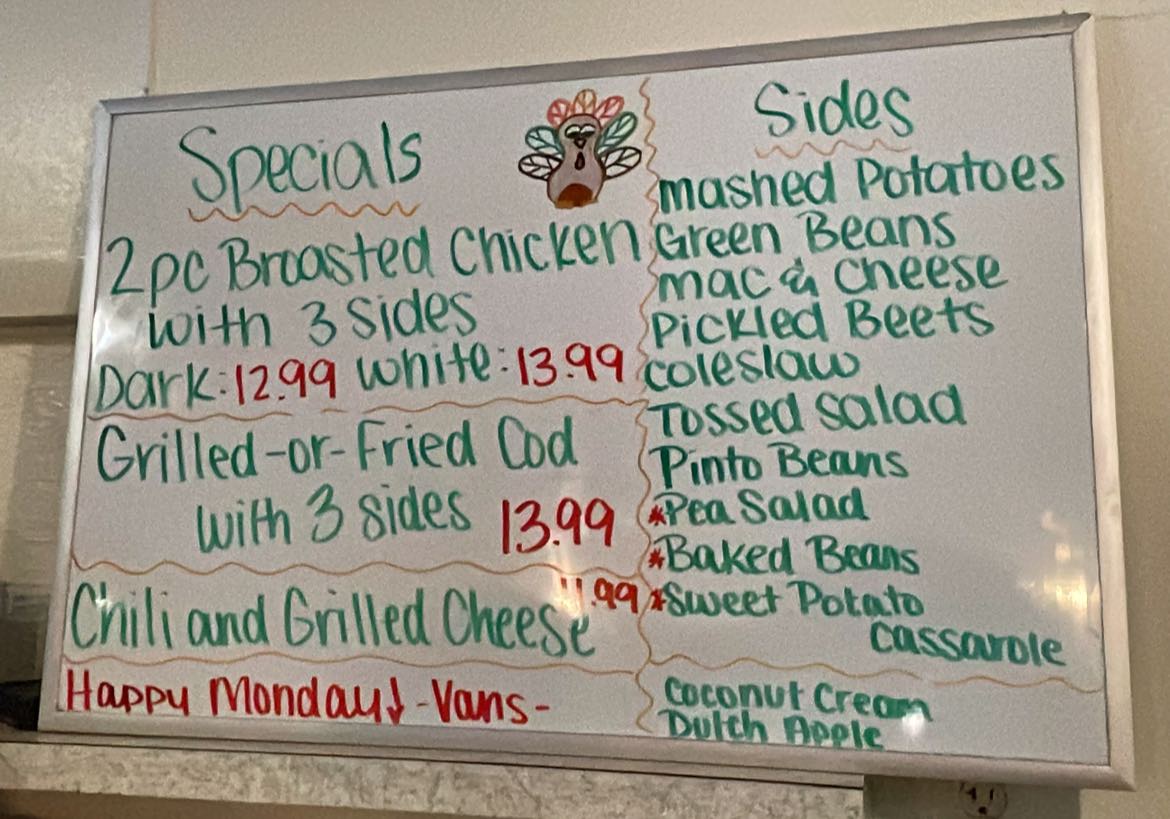 Specials
2pc Broasted Chicken
with 3 sides
Dark: 12.99 white: 13.99
Grilled-or-Fried Cod
with 3 sides 13.99
Chili and Grilled Cheese
Happy Monday! -Vans-
Sides
mashed Potatoes
Green Beans
mac & Cheese
Pickled Beets
coleslaw
Tossed salad
Pinto Beans
*Pea Salad
*Baked Beans
*Sweet Potato
Cassarole
Coconut Cream
Dutch Apple